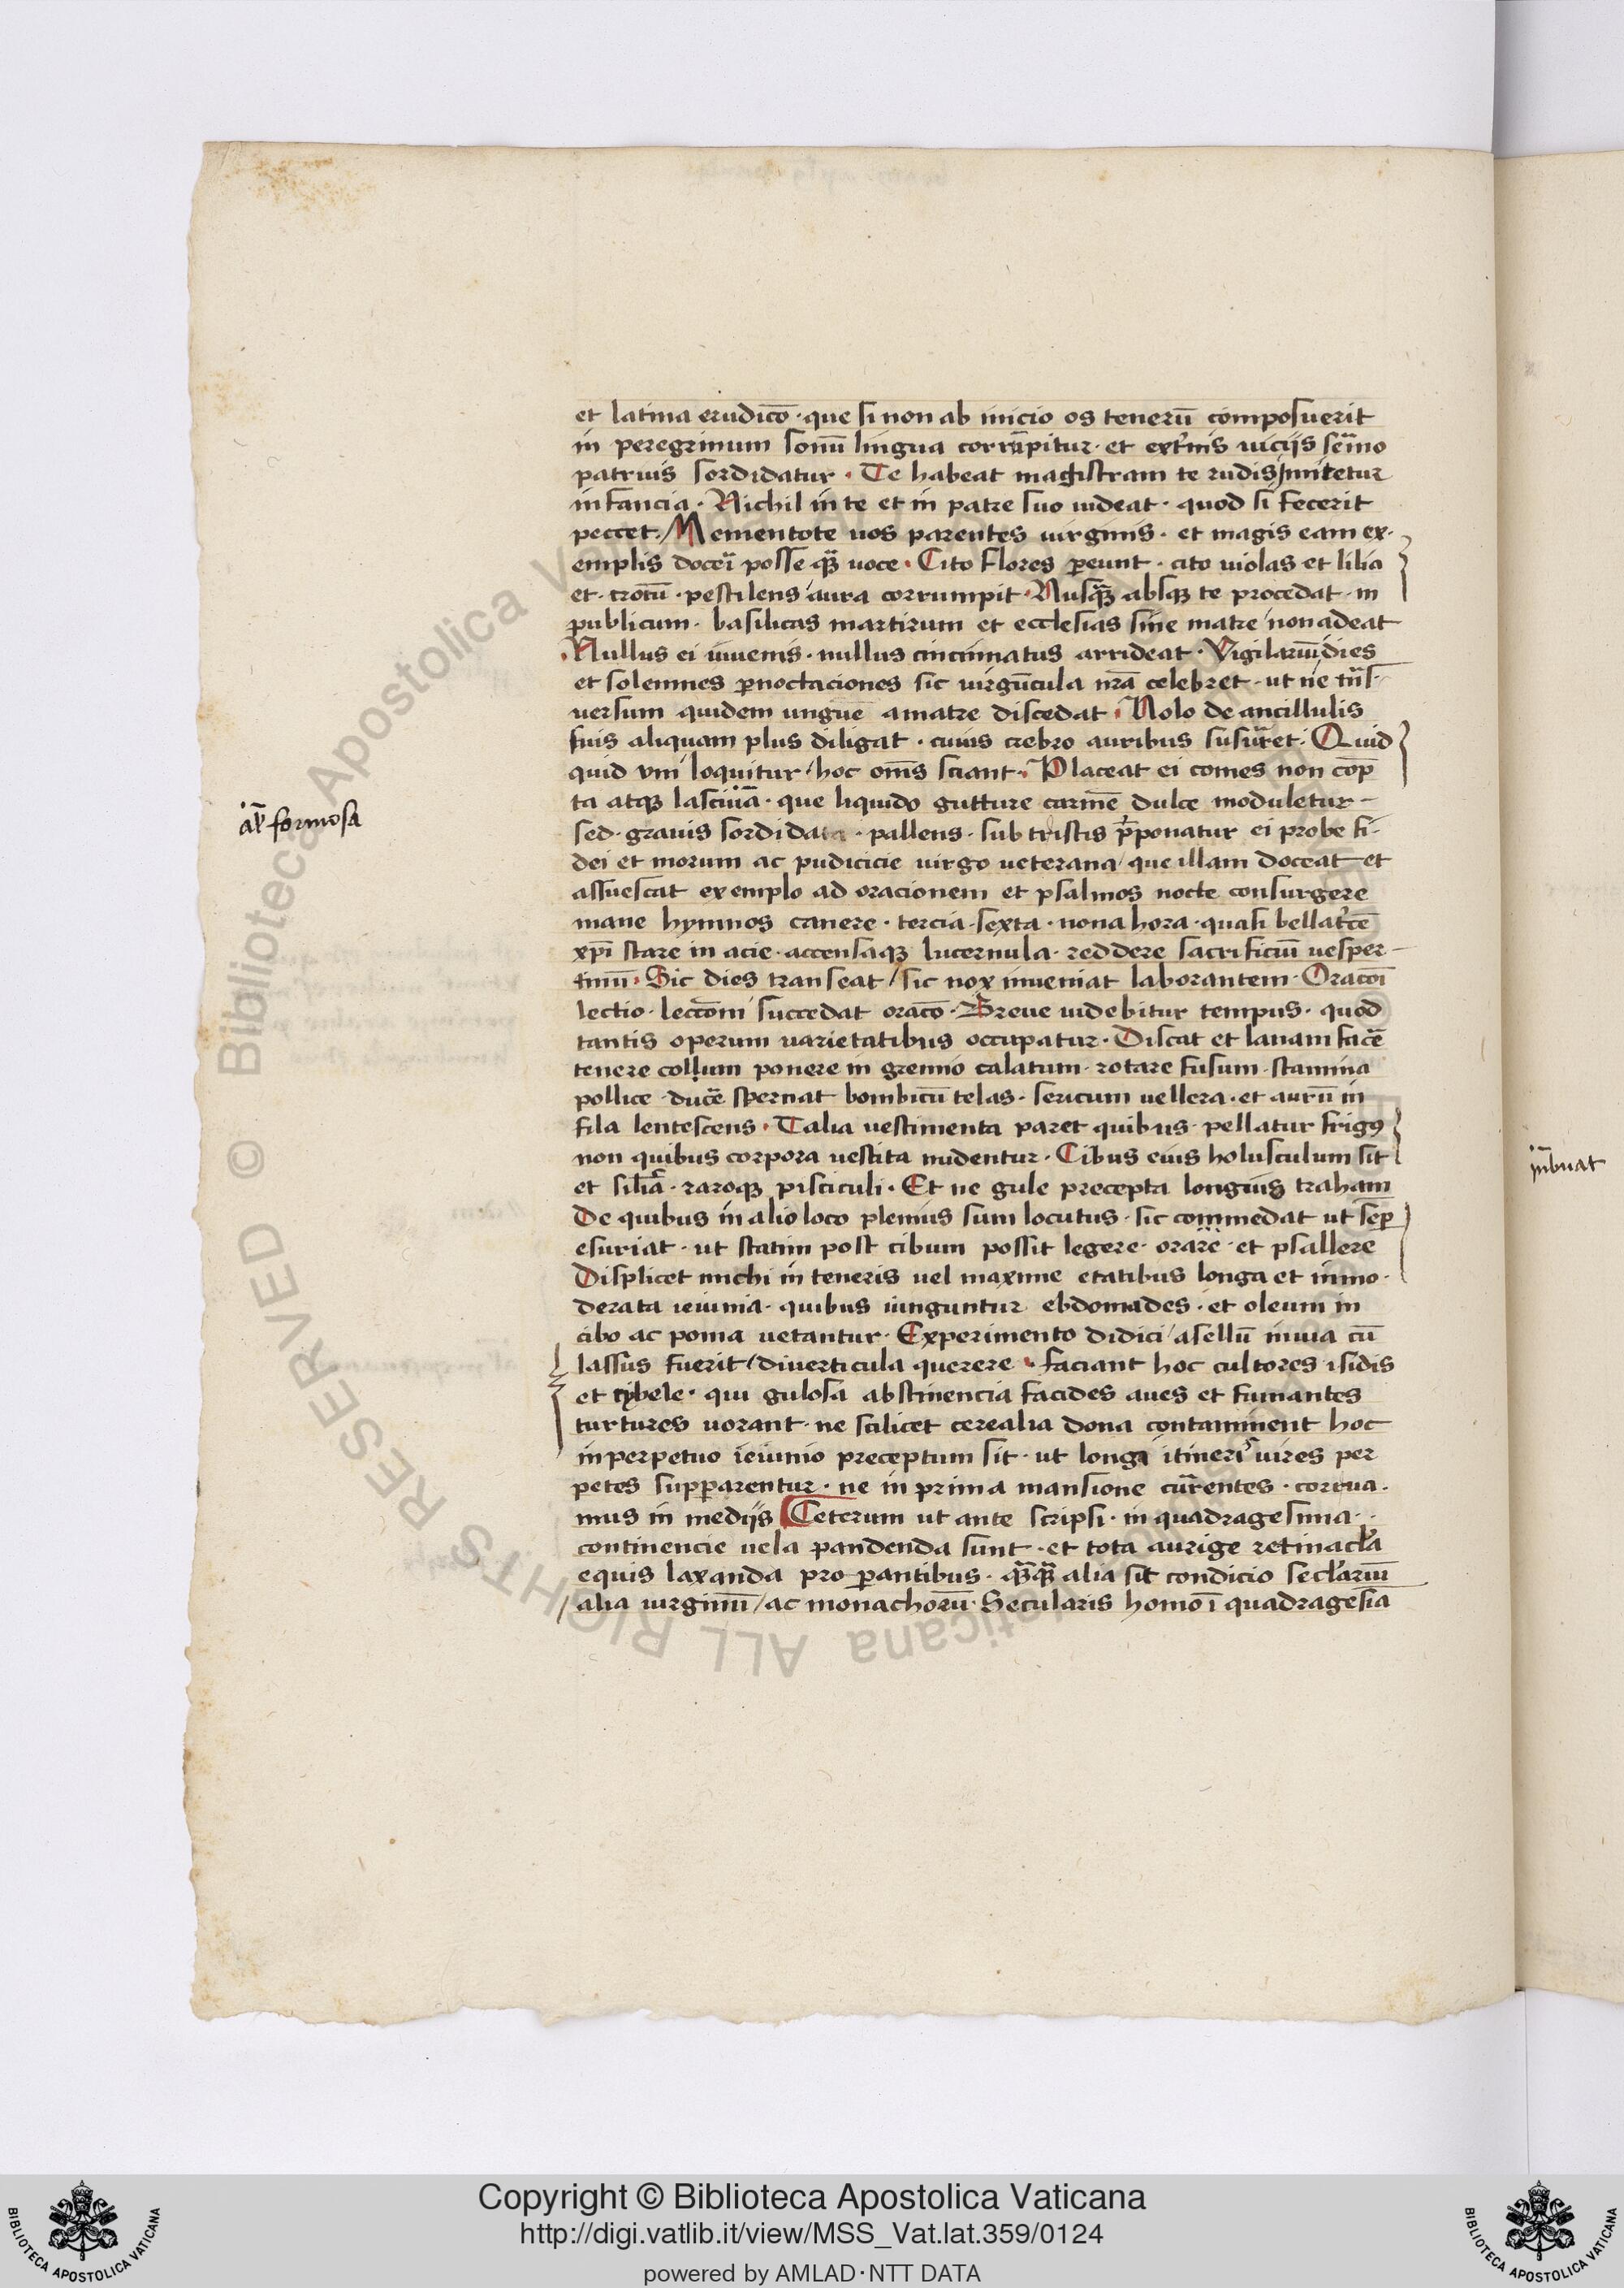 et latina erudicō · que si non ab inicio os tenerū composuerit
in peregrinum sonū lingua corrūpitur · et ext'nis uicijs sermo
patruis sordidatur · Te habeat magistram te rudis Jmitetur
infancia · Nichil in te et in patre suo uideat · quod si fecerit
peccet · Mementote uos parentes uirginis · et magis eam ex-
emplis docēi posse qꝫ uoce · Cito flores ꝑeunt · cito uiolas et lilia
et · crocū · pestilens aura corrumpit · Nusqꝫ absqꝫ te procedat in
publicum · basilicas martirum et ecclesias sine matre non adeat
Nullus ei iuuenis · nullus cincinnatus arrideat · Vigilarū dies
et solemnes ꝑnoctaciones sic uirgūcula nr̄a celebret · ut ne tn̄s-
uersum quidem unguē a matre discedat · Nolo de ancillulis
suis aliquam plus diligat · cuius crebro auribus susurret · Quid
quid vni loquitur hoc om̄s sciant · Placeat ei comes non cōp
ta atqꝫ lasciuia · que liquido gutture carmē dulce moduletur -
al' formosa
sed · grauis sordidata · pallens · sub tristis p̄ponatur ei probe fi-
dei et morum ac pudicicie uirgo ueterana que illam doceat et
assuescat exemplo ad oracionem et psalmos nocte consurgere
mane hymnos canere · tercia · sexta · nona hora · quasi bellat'cē
xp̄i stare in acie · accensaqꝫ lucernula · reddere sacrificiū uesper-
tinū · Sic dies transeat / sic nox inueniat laborantem · Oracōi
lectio · leccōni succedat oracō · Breue uidebitur tempus · quod
tantis operum uarietatibus occupatur · Discat et lanam facē
tenere collum ponere in gremio calatum · rotare fusum · stamina
pollice · ducē spernat bombicū telas · sericum uellera · et aurū in
fila lentescens · Talia uestimenta paret quibus · pellatur frigꝰ
non quibus corpora uestita nudentur · Cibus eius holusculum sit
et silīa · raroqꝫ pisciculi · Et ne gule precepta longius traham
De quibus in alio loco plenius sum locutus · sic commedat ut sēp
esuriat · ut statim post cibum possit legere · orare · et psallere
Displicet michi in teneris uel maxime etatibus longa et inmo-
derata ieiunia · quibus iunguntur ebdomades · et oleum in
cibo ac poma uetantur · Experimento didici / asellū in uia cū
lassus fuerit / diuerticula querere · faciant hoc cultores isidis
et cybele · qui gulosa abstinencia facides aues et fumantes
turtures uorant · ne scilicet cerealia dona contaminent hoc
in perpetuo ieiunio preceptum sit · ut longi itineri' uires per
petes supparentur · ne in prima mansione currentes · corrua-
mus in medijs Ceterum ut ante scripsi · in quadragesima ·
continencie uela pandenda sunt · et tota aurige retinacl'a
equis laxanda pro ꝑantibus · qꝫqꝫ alia sit condicio secl'ariū
alia uirginū / ac monachorū · Secularis homo ī quadragesīa
Jmbuat
Copyright © Biblioteca Apostolica Vaticana
http://digi.vatlib.it/view/MSS_Vat.lat.359/0124
powered by AMLAD·NTT DATA
BIBLIOTECA APOSTOLICA VATICANA
BIBLIOTECA APOSTOLICA VATICANA